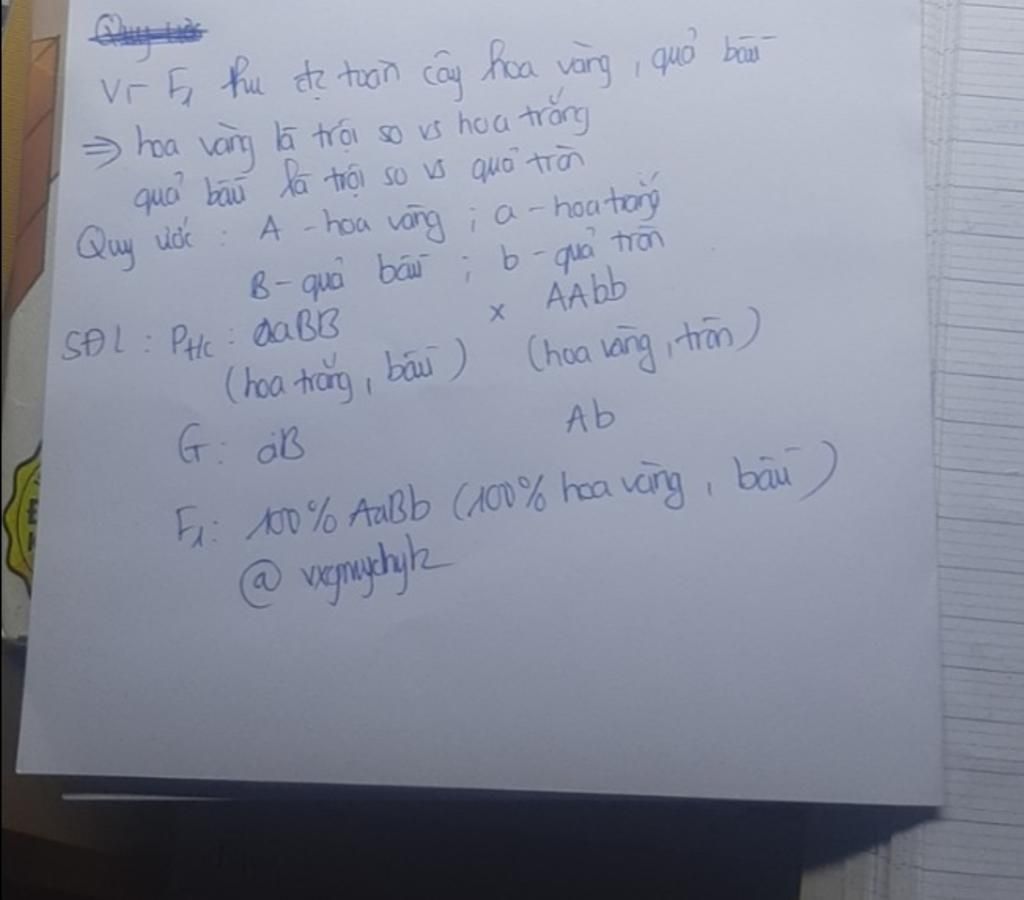 Vì F1 thu đc toàn cây hoa vàng, quả bầu
=> hoa vàng là trội so vs hoa trắng
quả bầu là trội so vs quả tròn
Quy ước : A - hoa vàng ; a - hoa trắng
B - quả bầu ; b - quả tròn
SĐL : Pt/c : aaBB × AAbb
(hoa trắng, bầu) (hoa vàng, tròn)
G : aB Ab
F1 : 100% AaBb (100% hoa vàng, bầu)
@